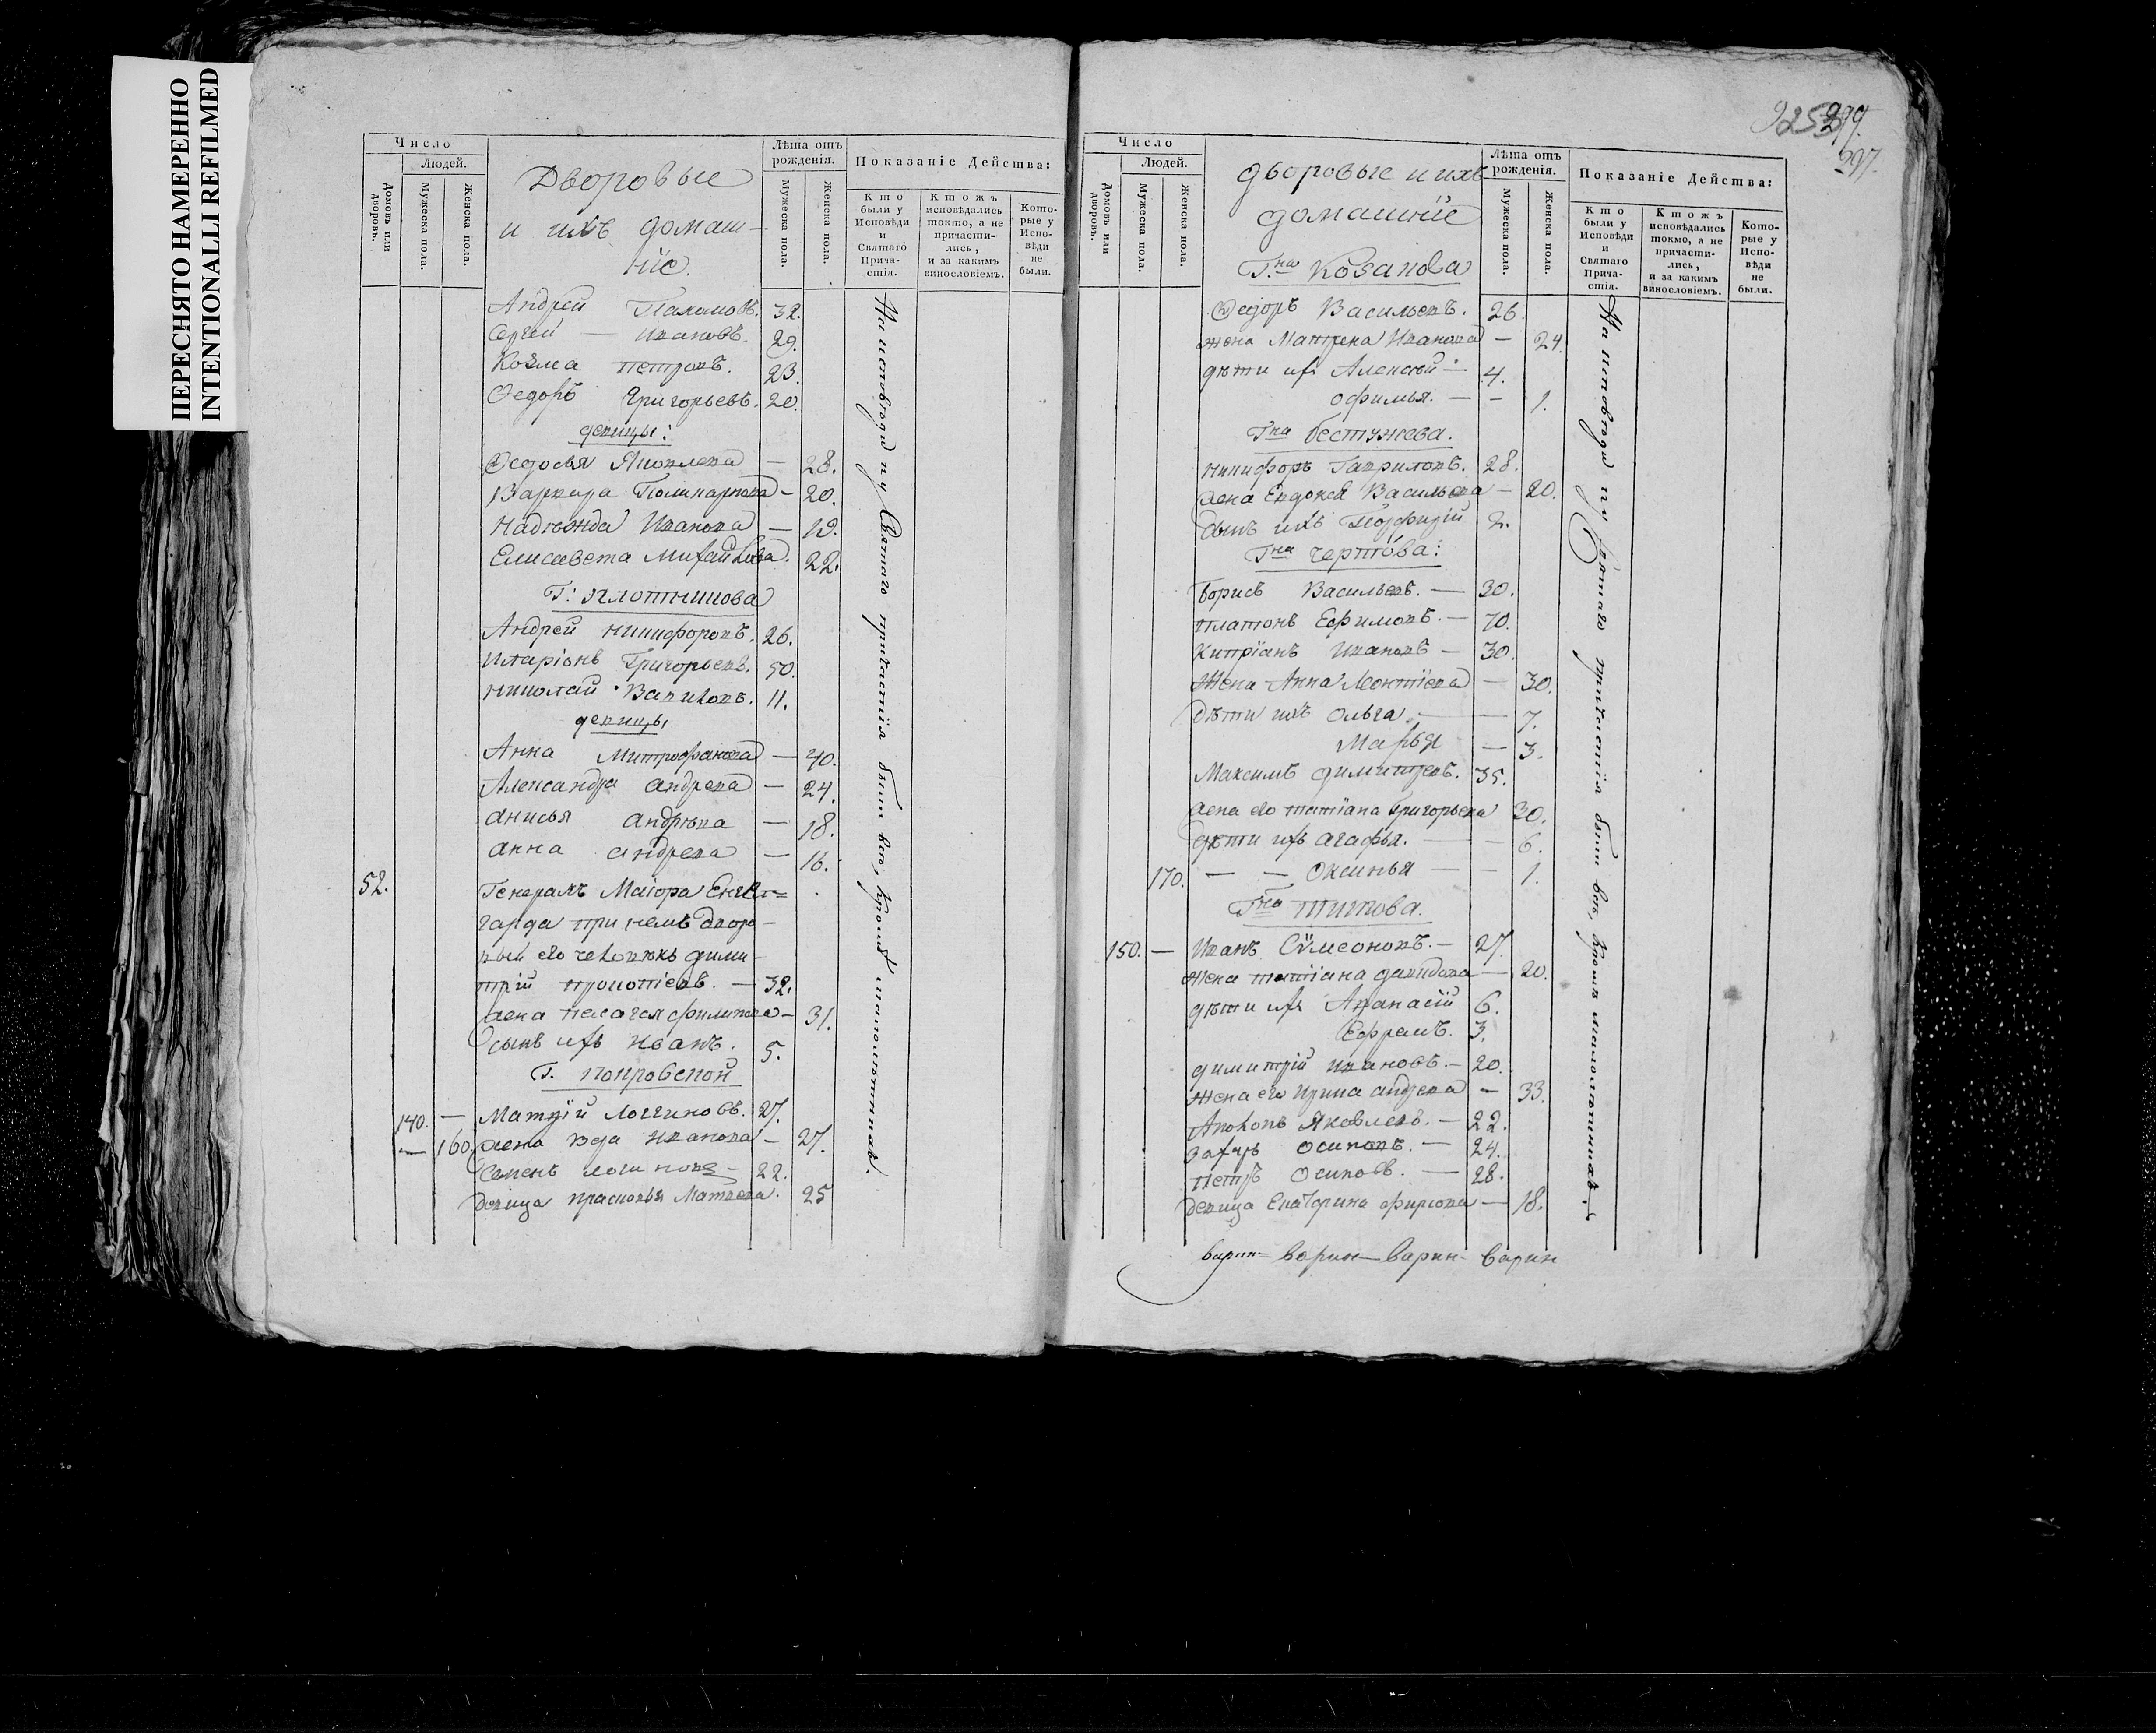 ПЕРЕСНЯТО НАМЕРЕННО
INTENTIONALLI REFILMED
Число
Людей.
Домовъ или дворовъ.
Мужеска пола.
Женска пола.
Дворовые
и ихъ домаш-
нiе.
Лѣта отъ рожденія.
Мужеска пола.
Женска пола.
Показаніе Действа:
Кто были у Исповѣди и Святаго Причастія.
Ктожъ исповѣдались токмо, а не причастились, и за какимъ винословіемъ.
Которые у Исповѣди не были.
Андрей Пахамовъ. 32.
Сергей — Ивановъ. 29.
Козма Петровъ. 23.
Ѳедоръ Григорьевъ. 20.
девицы:
Ѳедосья Яковлева — 28.
Варвара Поликарпова — 20.
Надѣжда Иванова — 19.
Елисавета Михайлова. 22.
Г: Плотникова
Андрей Никифоровъ. 26.
Иларіонъ Григорьевъ. 50.
Николай Вавиловъ. 11.
девицы
Анна Митрофанова — 40.
Александра Андрева — 24.
Анисья Андрѣва — 18.
Анна Андрева — 16.
52. Генералъ Маіора Енгел=
гарда при немъ двор-
вый его человѣкъ Дими-
трій Прокопіевъ. — 32.
жена Пелагея Филипова — 31.
сынъ ихъ Иванъ. 5.
Г. Покровской
140. — Матвій Логгиновъ. 27.
— 160. жена Ева Иванова — 27.
Семенъ Логиновъ — 22.
Девица Прасковья Матвева. 25
На исповѣди и у Святаго причастія были всѣ, кромѣ малолѣтнихъ.
299.
297.
Число
Людей.
Домовъ или дворовъ.
Мужеска пола.
Женска пола.
дворовые и ихъ
домашніе
Гна Козакова
Лѣта отъ рожденія.
Мужеска пола.
Женска пола.
Показаніе Действа:
Кто были у Исповѣди и Святаго Причастія.
Ктожъ исповѣдались токмо, а не причастились, и за какимъ винословіемъ.
Которые у Исповѣди не были.
Ѳедоръ Васильевъ. 26.
жена Матрена Иванова — 24.
дѣти ихъ Алексѣй — 4.
Офимья. — — 1.
Гна Бестужева.
Никифоръ Гавриловъ. 28.
жена Евдокея Васильева — 20.
сынъ ихъ Порфирій 2.
Гна Черткова:
Борисъ Васильевъ. — 30.
Платонъ Ефимовъ. — 70.
Кипріанъ Ивановъ — 30.
Жена Анна Леонтіева — 30.
Дѣти ихъ Ольга. — — 7.
Марья — 3.
Максимъ Димитревъ. 35.
жена его Татіана Григорьева 30.
дѣти ихъ Агафья. — — 6.
170. — — Оксинья — — 1.
Гна Титова.
150. — Иванъ Сѵмеоновъ. — 27.
Жена Татіана Давидова — 20.
дѣти ихъ Афанасій 6.
Ефремъ. 3.
Димитрій Ивановъ. — 20.
Жена его Ирина Андрева — 33.
Яковлевъ. — 22.
Захаръ Осиповъ. — 24.
Петръ Осиповъ. — 28.
Девица Екатерина Фирсова — 18.
На исповѣди и у Святаго причастія были всѣ, кромѣ малолѣтнихъ.
варин— варин— варин— варин